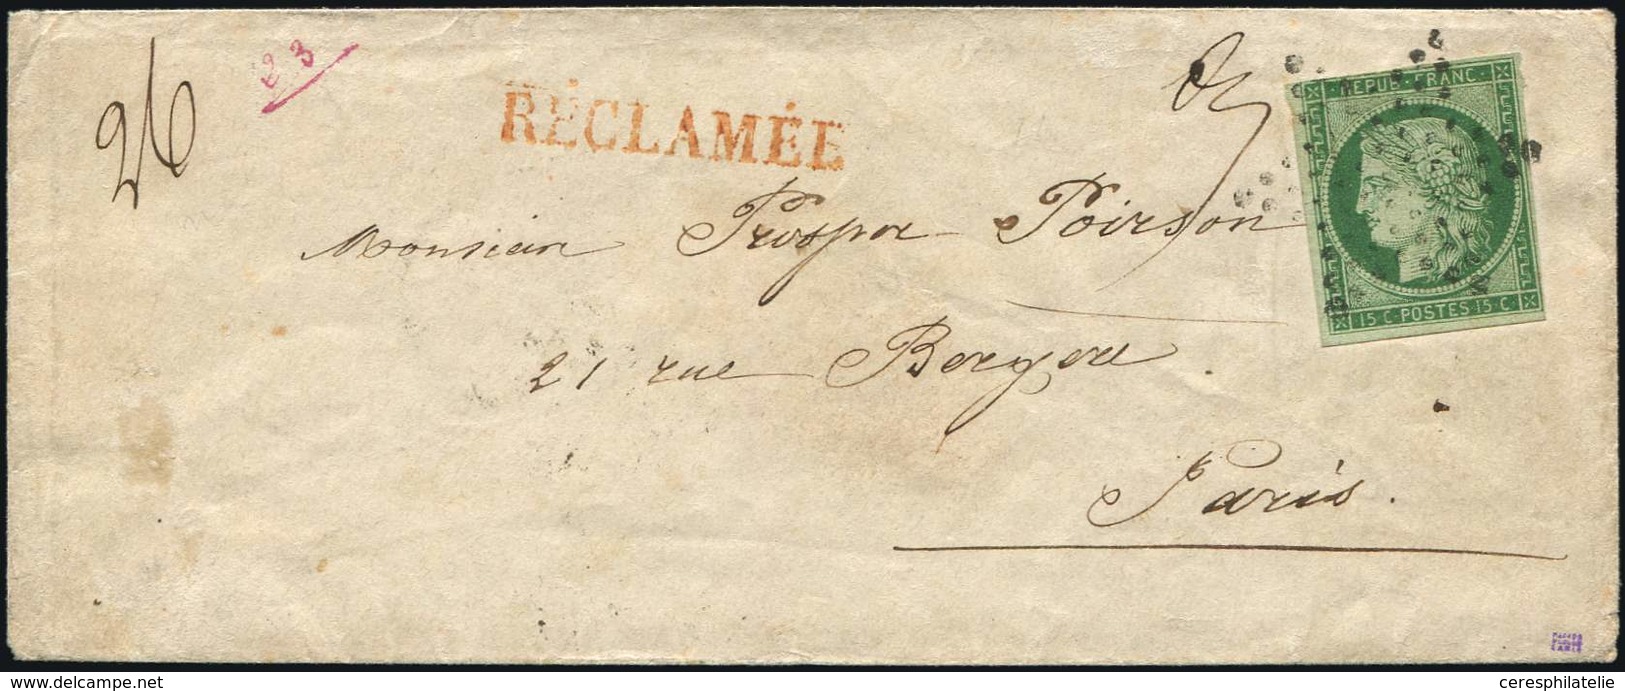 26
23
RÉCLAMÉE
REPUB. FRANC.
15 C. POSTES 15 C.
Monsieur Prosper Poirson
21 rue Bergere
Paris.
www.delcampe.net
ceresphilatelie